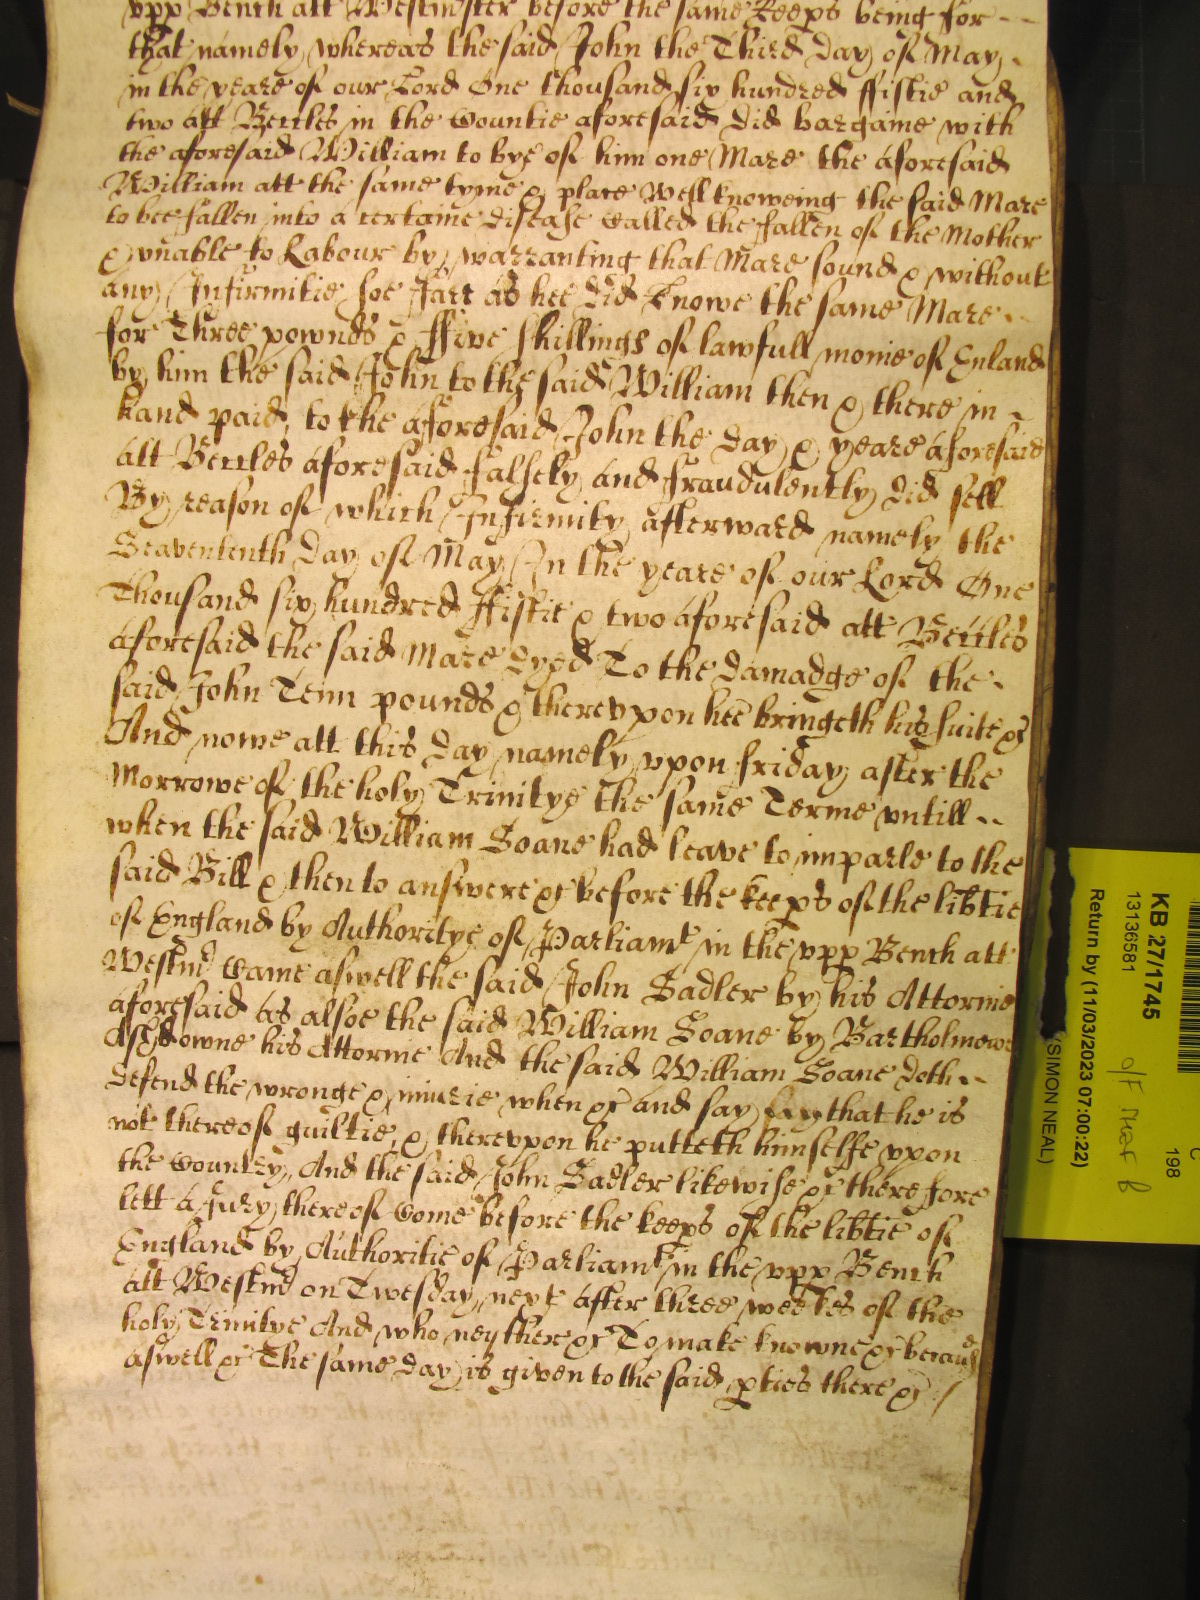 vpp Bench att Westminster before the same Keeps being for --
that namely whereas the said John the Third day of May -
in the yeare of our Lord One thousand six hundred ffiftie and
two att Beccles in the Countie aforesaid did bargaine with
the aforesaid William to bye of him one Mare the aforesaid
William att the same tyme & place well knoweing the said Mare
to bee fallen into a certaine disease Called the fallen of the Mother
& vnable to Labour by warranting that Mare sound & without
any Infirmitie soe farr as hee did knowe the same Mare --
for Three pownds & ffive shillings of lawfull monie of Enland
by him the said John to the said William then & there in -
hand paid, to the aforesaid John the day & yeare aforesaid
att Beccles aforesaid falsely and fraudulently did sell
By reason of which Infirmity afterward namely the
Seavententh day of May In the yeare of our Lord One
Thousand six hundred ffiftie & two aforesaid att Beccles
aforesaid the said Mare dyed To the damadge of the -
said John Tenn pounds & therevpon hee bringeth his suite &c
And nowe att this day namely vpon friday after the
Morrowe of the holy Trinitye the same Terme vntill --
when the said William Soane had leave to imparle to the
said Bill & then to answere &c before the keeps of the libtie
of England by Authoritye of Parliamt in the vpp Bench att
Westmr Came aswell the said John Sadler by his Attornie
aforesaid as alsoe the said William Soane by Bartholmewe
Ashdowne his Attornie And the said William Soane doth --
defend the wronge & iniurie when &c and say say that he is
not thereof guiltie, & therevpon he putteth himselfe vpon
the Country, And the said John Sadler likewise &c therefore
lett a Jury thereof Come before the keeps of the libtie of
England by Authoritie of Parliamt in the vpp Bench
att Westmr on Twesday next after three weekes of the
holy Trinitye And who neyther &c To make knowne &c because
aswell &c The same day is given to the said pties there &c /
KB 27/1745
13136581
Return by (11/03/2023 07:00:22)
(SIMON NEAL)
C
198